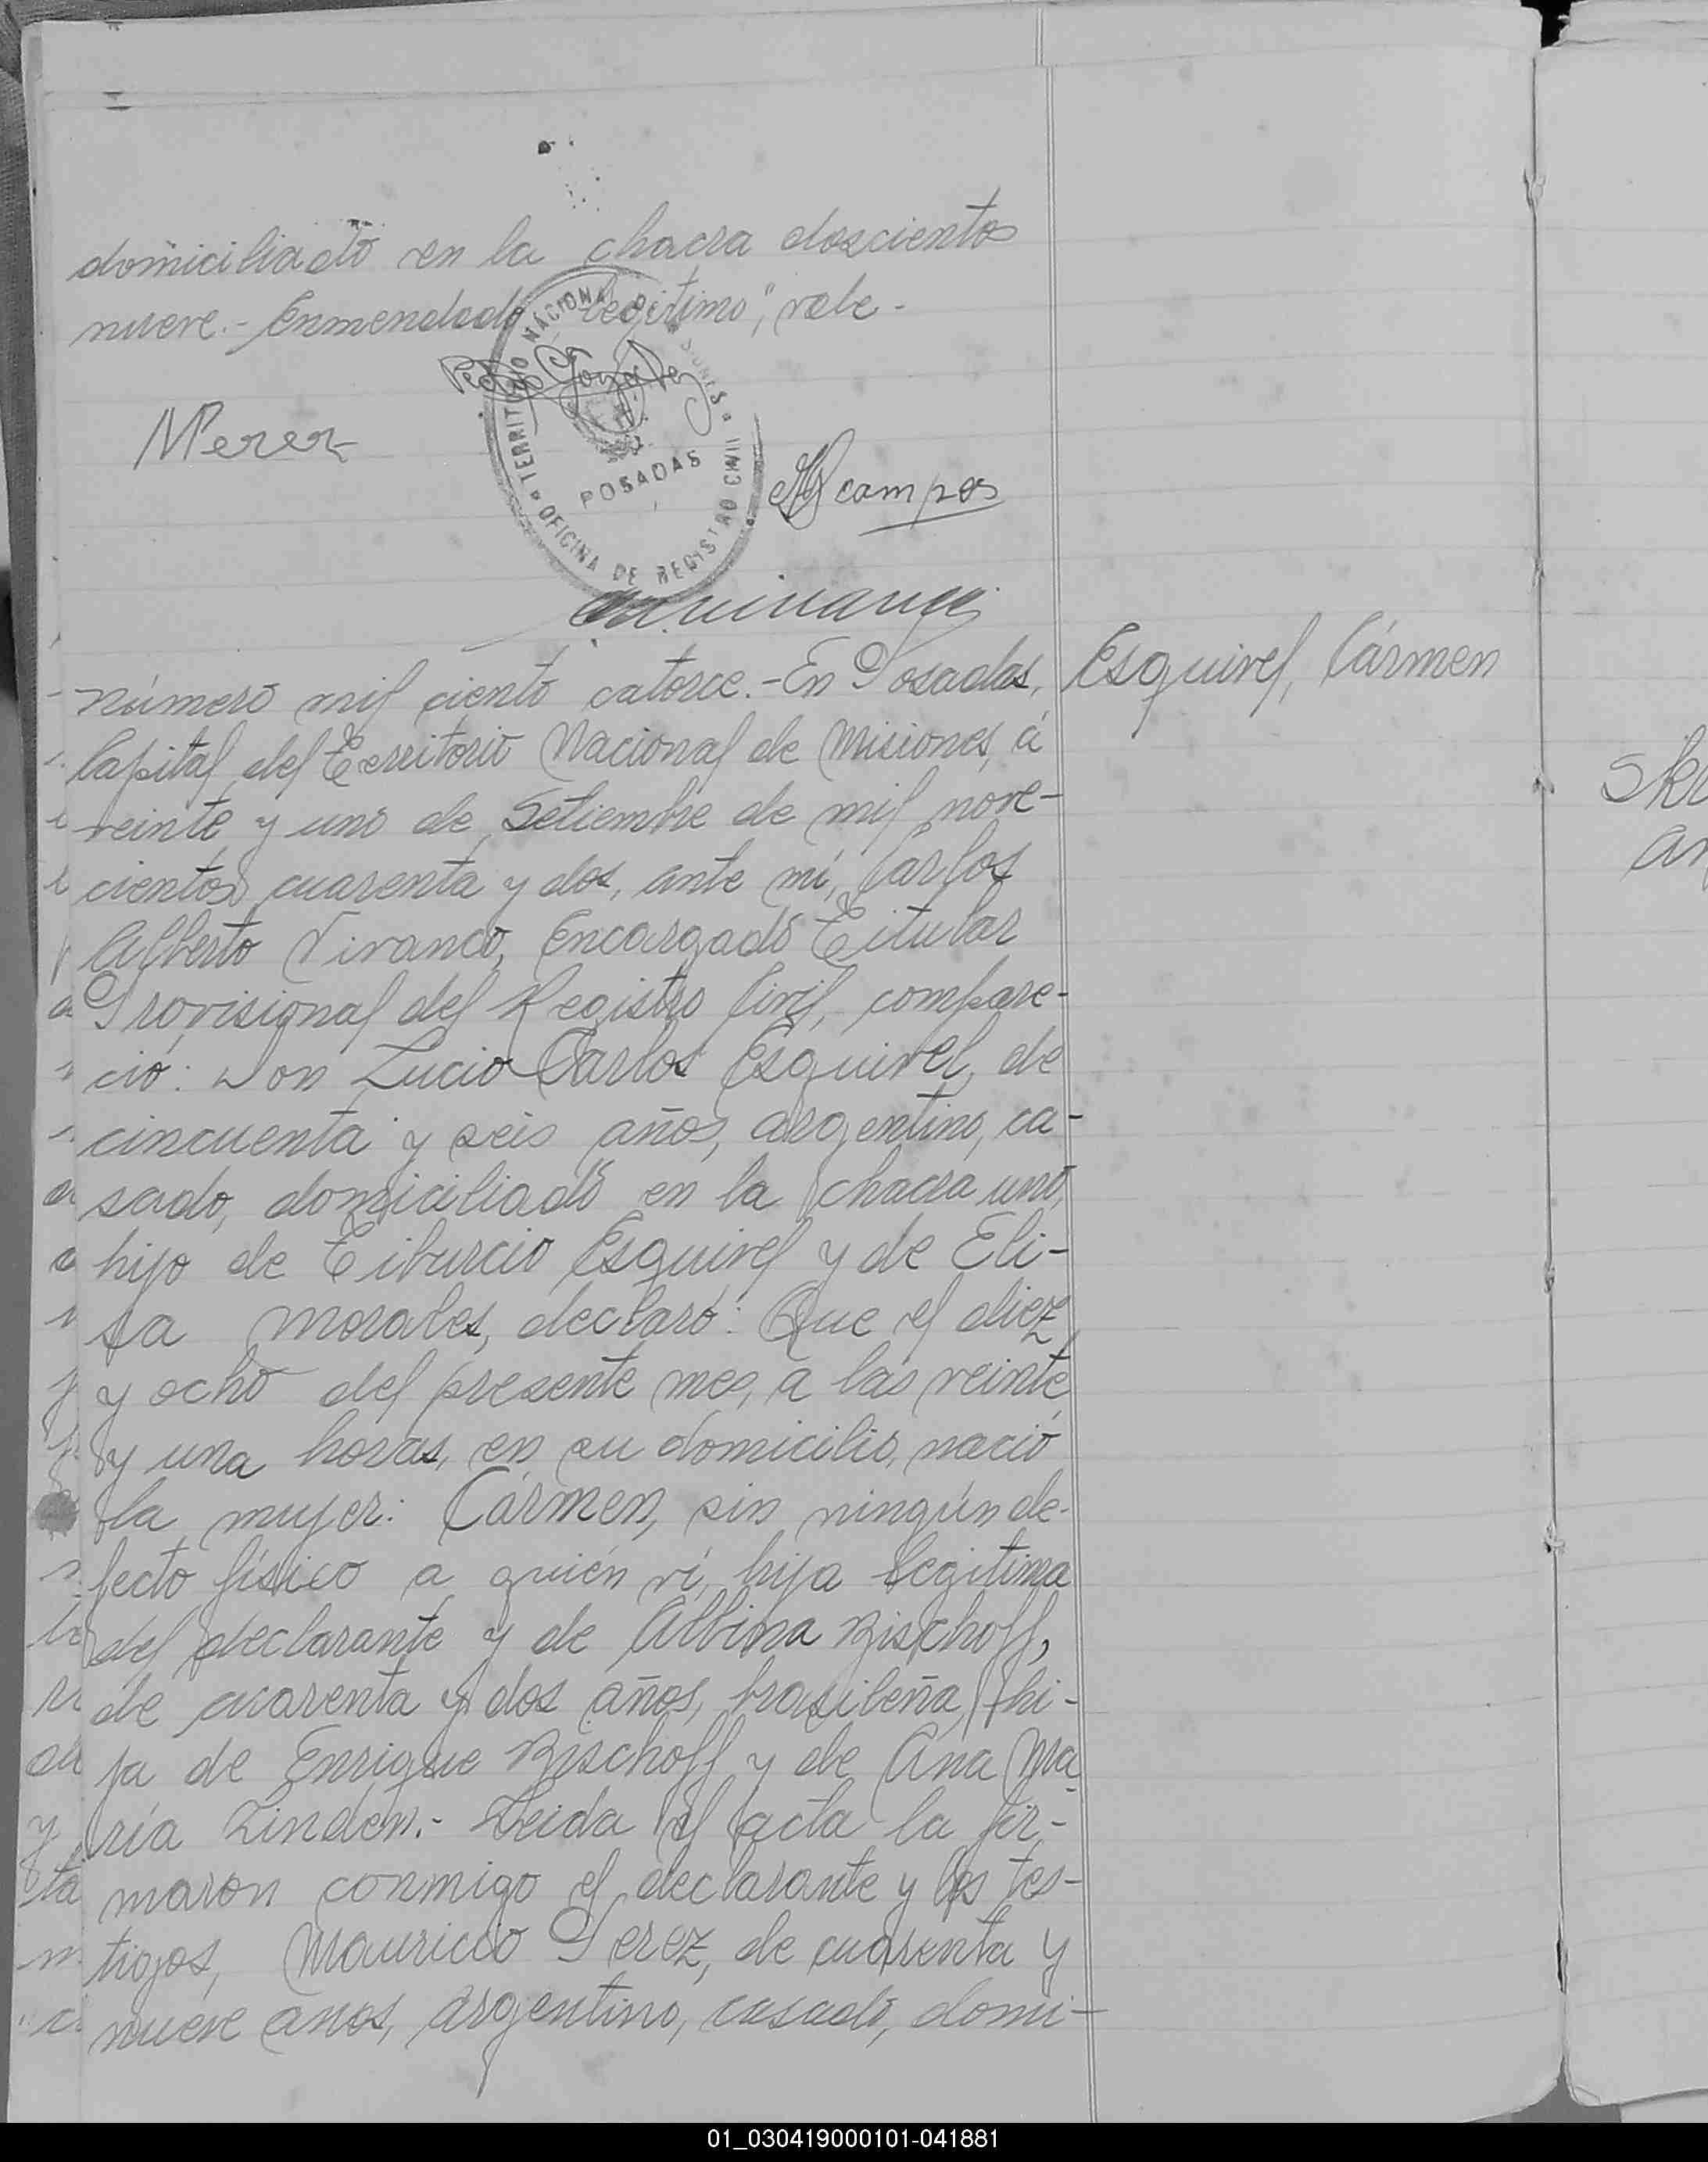 domiciliado en la chacra doscientos
nueve.- Enmendado "legitimo", vale.-
TERRITORIO NACIONAL DE MISIONES
OFICINA DE REGISTRO CIVIL
POSADAS
Pedro González
MPerez
Ocampos
Número mil ciento catorce.- En Posadas,
Esquivel, Cármen
Capital del Territorio Nacional de Misiones, á
veinte y uno de Setiembre de mil nove-
cientos cuarenta y dos, ante mí, Carlos
Alberto Vivanco, Encargado Titular
Provisional del Registro Civil, compare-
ció: Don Lucio Carlos Esquivel, de
cincuenta y seis años, argentino, ca-
sado, domiciliado en la chacra uno,
hijo de Tiburcio Esquivel y de Eli-
sa Morales, declaró: Que el diez
y ocho del presente mes, a las veinte
y una horas, en su domicilio, nació
la mujer: Cármen, sin ningún de-
fecto físico a quién ví, hija legitima
del declarante y de Albina Bischoff,
de cuarenta y dos años, brasileña, hi-
ja de Enrique Bischoff y de Ana Ma-
ría Linden.- Leida el acta la fir-
maron conmigo el declarante y los tes-
tigos, Mauricio Perez, de cuarenta y
nueve años, argentino, casado, domi-
01_030419000101-041881